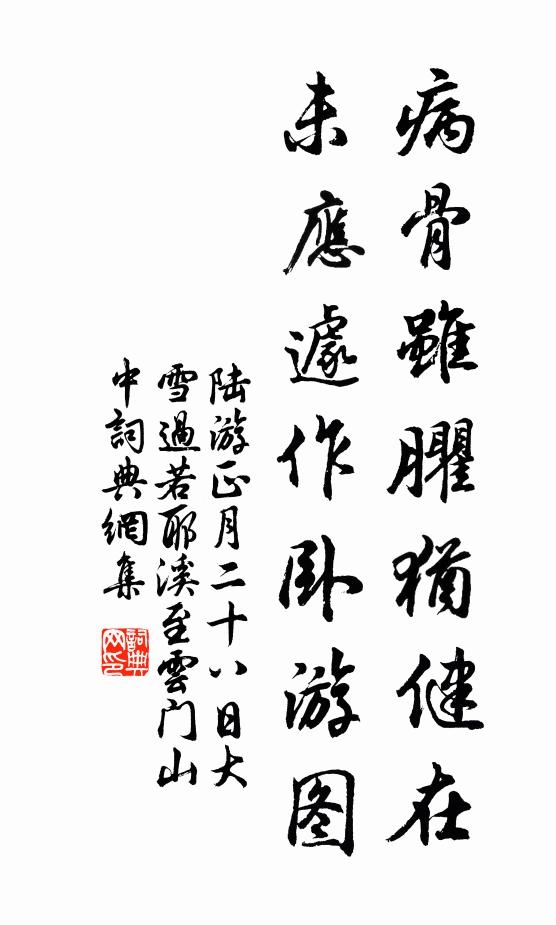 病骨雖臞猶健在
未應遽作卧游图
陆游正月二十八日大
雪過若耶溪至雲门山
中詞典網集
詞典
网印